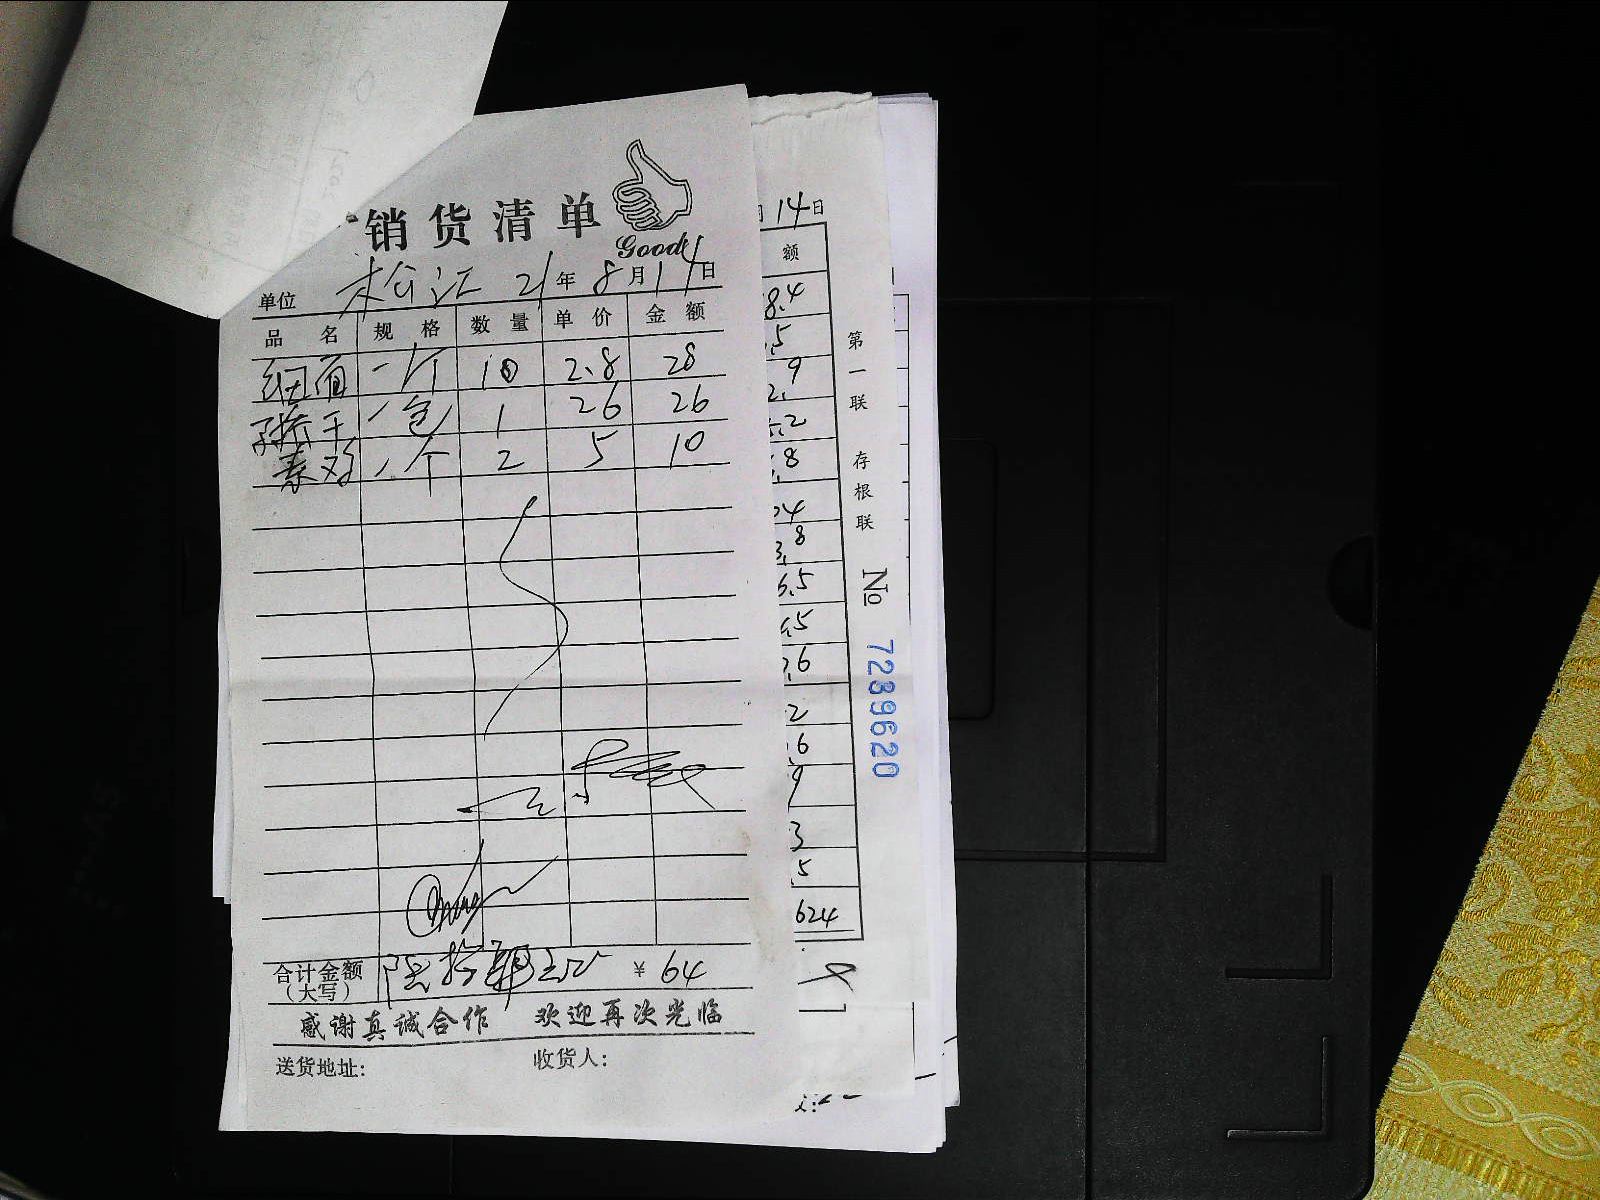 销货清单
Good
单位 松江 21年8月14日
品名 规格 数量 单价 金额
细面 一个 10 2.8 28
一包 1 26 26
素鸡 一个 2 5 10
合计金额
(大写) 陆拾肆元 ¥ 64
感谢真诚合作 欢迎再次光临
送货地址: 收货人:
14日
额
8.4
.5
9
2.
.2
.8
04
3.8
6.5
.5
.6
2
.6
9
3
.5
624
第一联 存根联 № 7289620